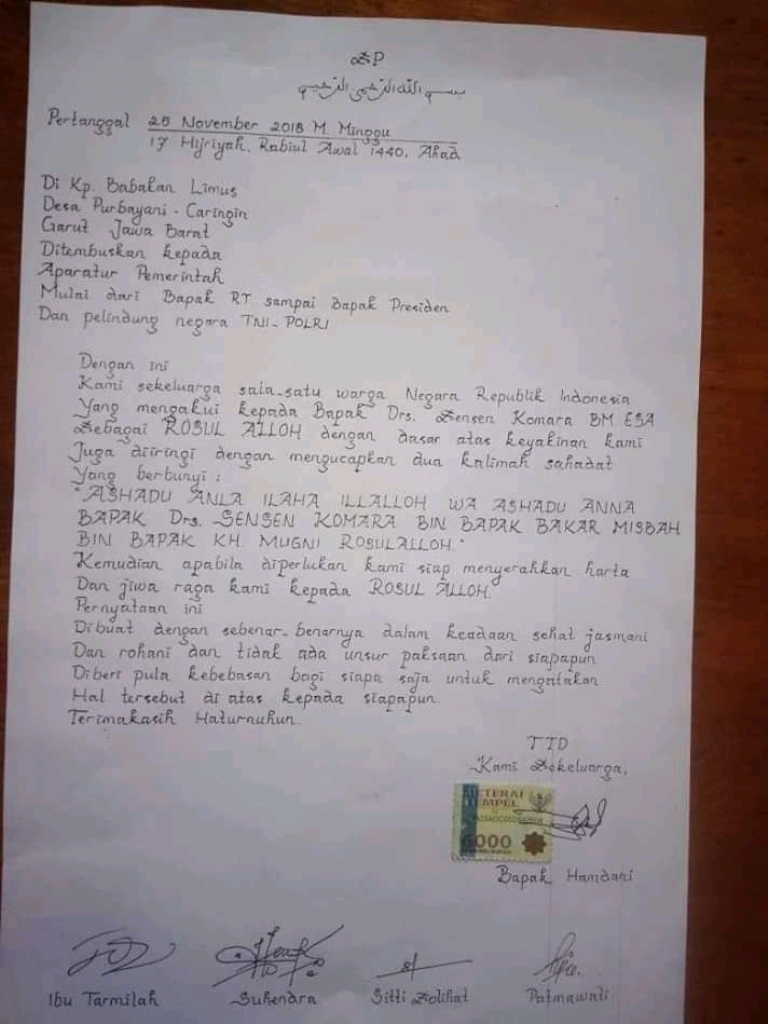 SP
بسم الله الرحمن الرحيم
Pertanggal 25 November 2018 M. Minggu
17 Hijriyah, Rabiul Awal 1440, Ahad
Di Kp. Babakan Limus
Desa Purbayani - Caringin
Garut Jawa Barat
Ditembuskan kepada
Aparatur Pemerintah
Mulai dari Bapak RT sampai bapak Presiden
Dan pelindung negara TNI-POLRI
Dengan ini
Kami sekeluarga sala-satu warga Negara Republik Indonesia
Yang mengakui kepada Bapak Drs. Sensen Komara BM ESA
Sebagai ROSUL ALLOH dengan dasar atas keyakinan kami
Juga diiringi dengan mengucapkan dua kalimah sahadat
Yang berbunyi :
"ASHADU ANLA ILAHA ILLALLOH WA ASHADU ANNA
BAPAK Drs. SENSEN KOMARA BIN BAPAK BAKAR MISBAH
BIN BAPAK KH. MUGNI ROSULALLOH."
Kemudian apabila diperlukan kami siap menyerahkan harta
Dan jiwa raga kami kepada ROSUL ALLOH.
Pernyataan ini
Dibuat dengan sebenar-benarnya dalam keadaan sehat jasmani
Dan rohani dan tidak ada unsur paksaan dari siapapun
Diberi pula kebebasan bagi siapa saja untuk mengatakan
Hal tersebut di atas kepada siapapun.
Terimakasih Haturnuhun.
TTD
Kami Sekeluarga,
METERAI
TEMPEL
6000
Bapak Hamdani
Ibu Tarmilah Suhendra Sitti Solihat Patmawati